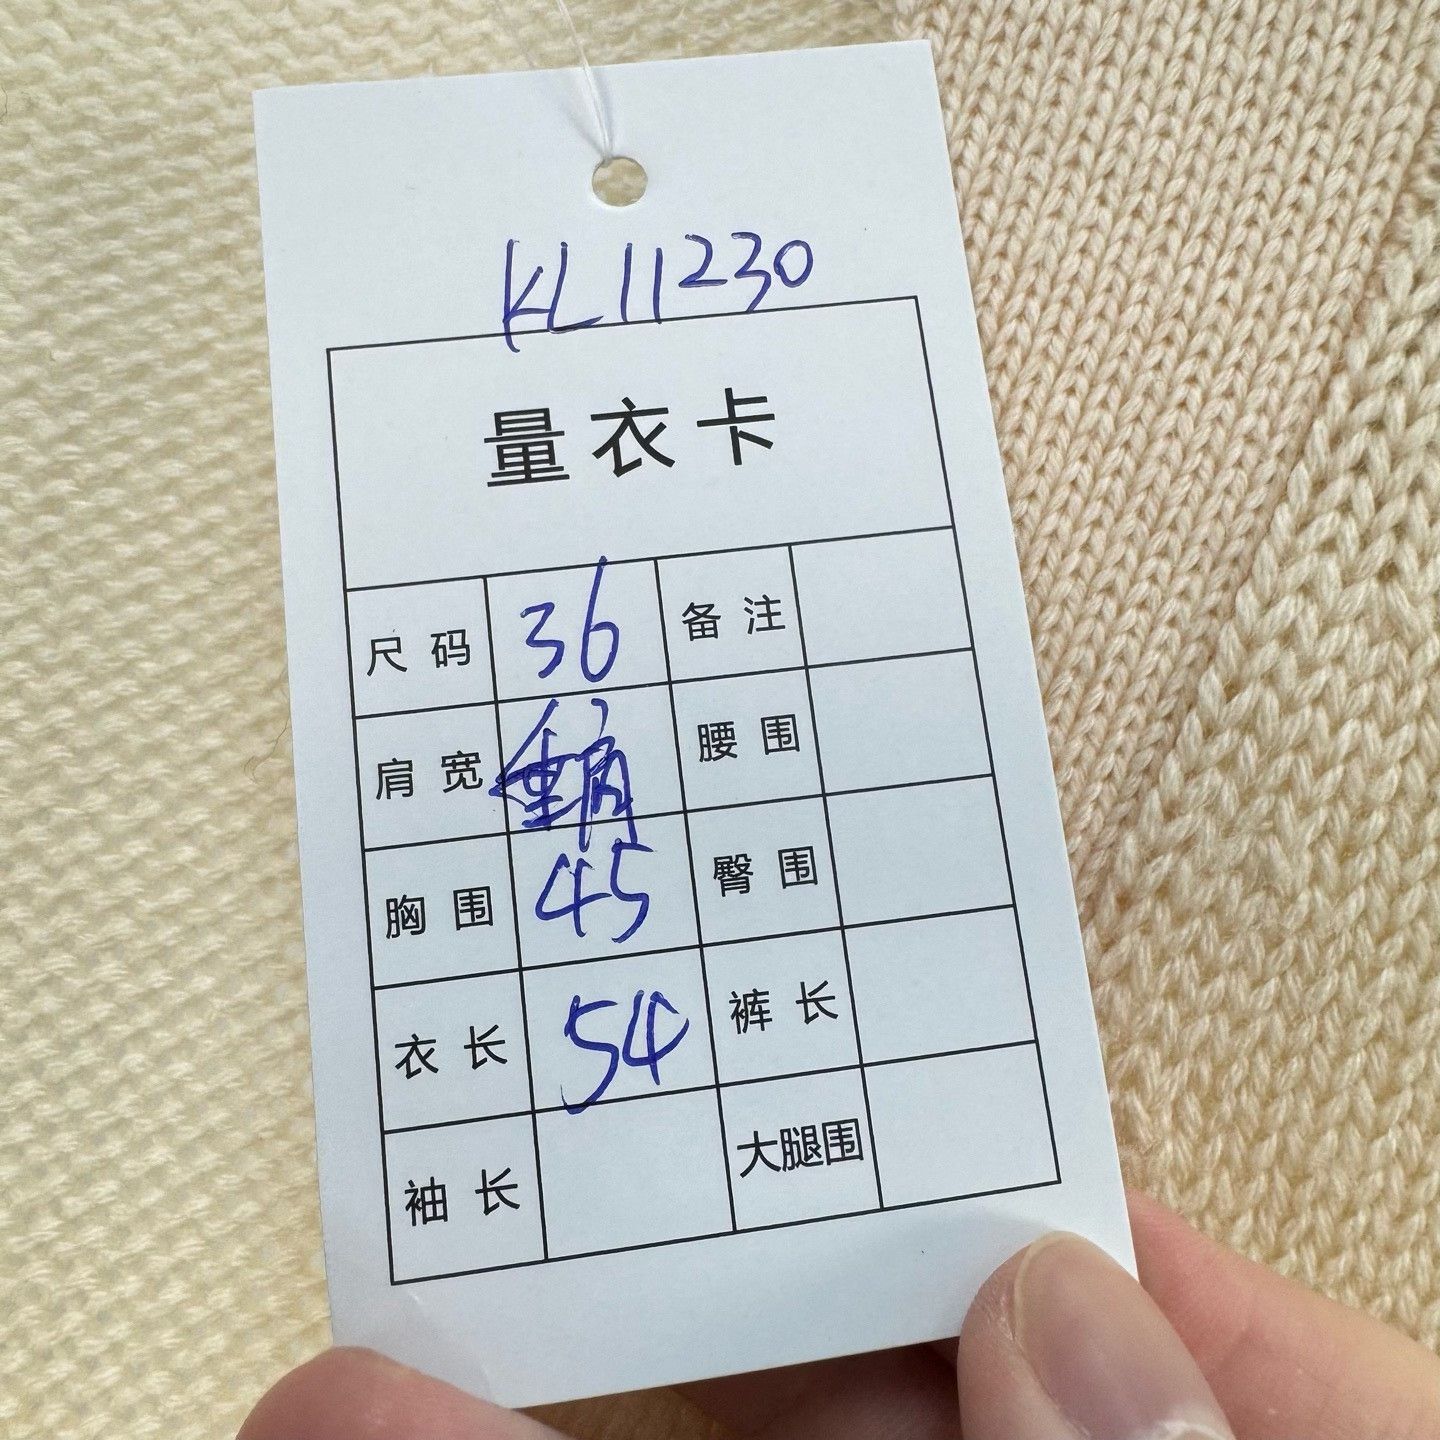 KL11230
量衣卡
尺码 36 备注
肩宽 腰围
胸围 45 臀围
衣长 54 裤长
袖长 大腿围